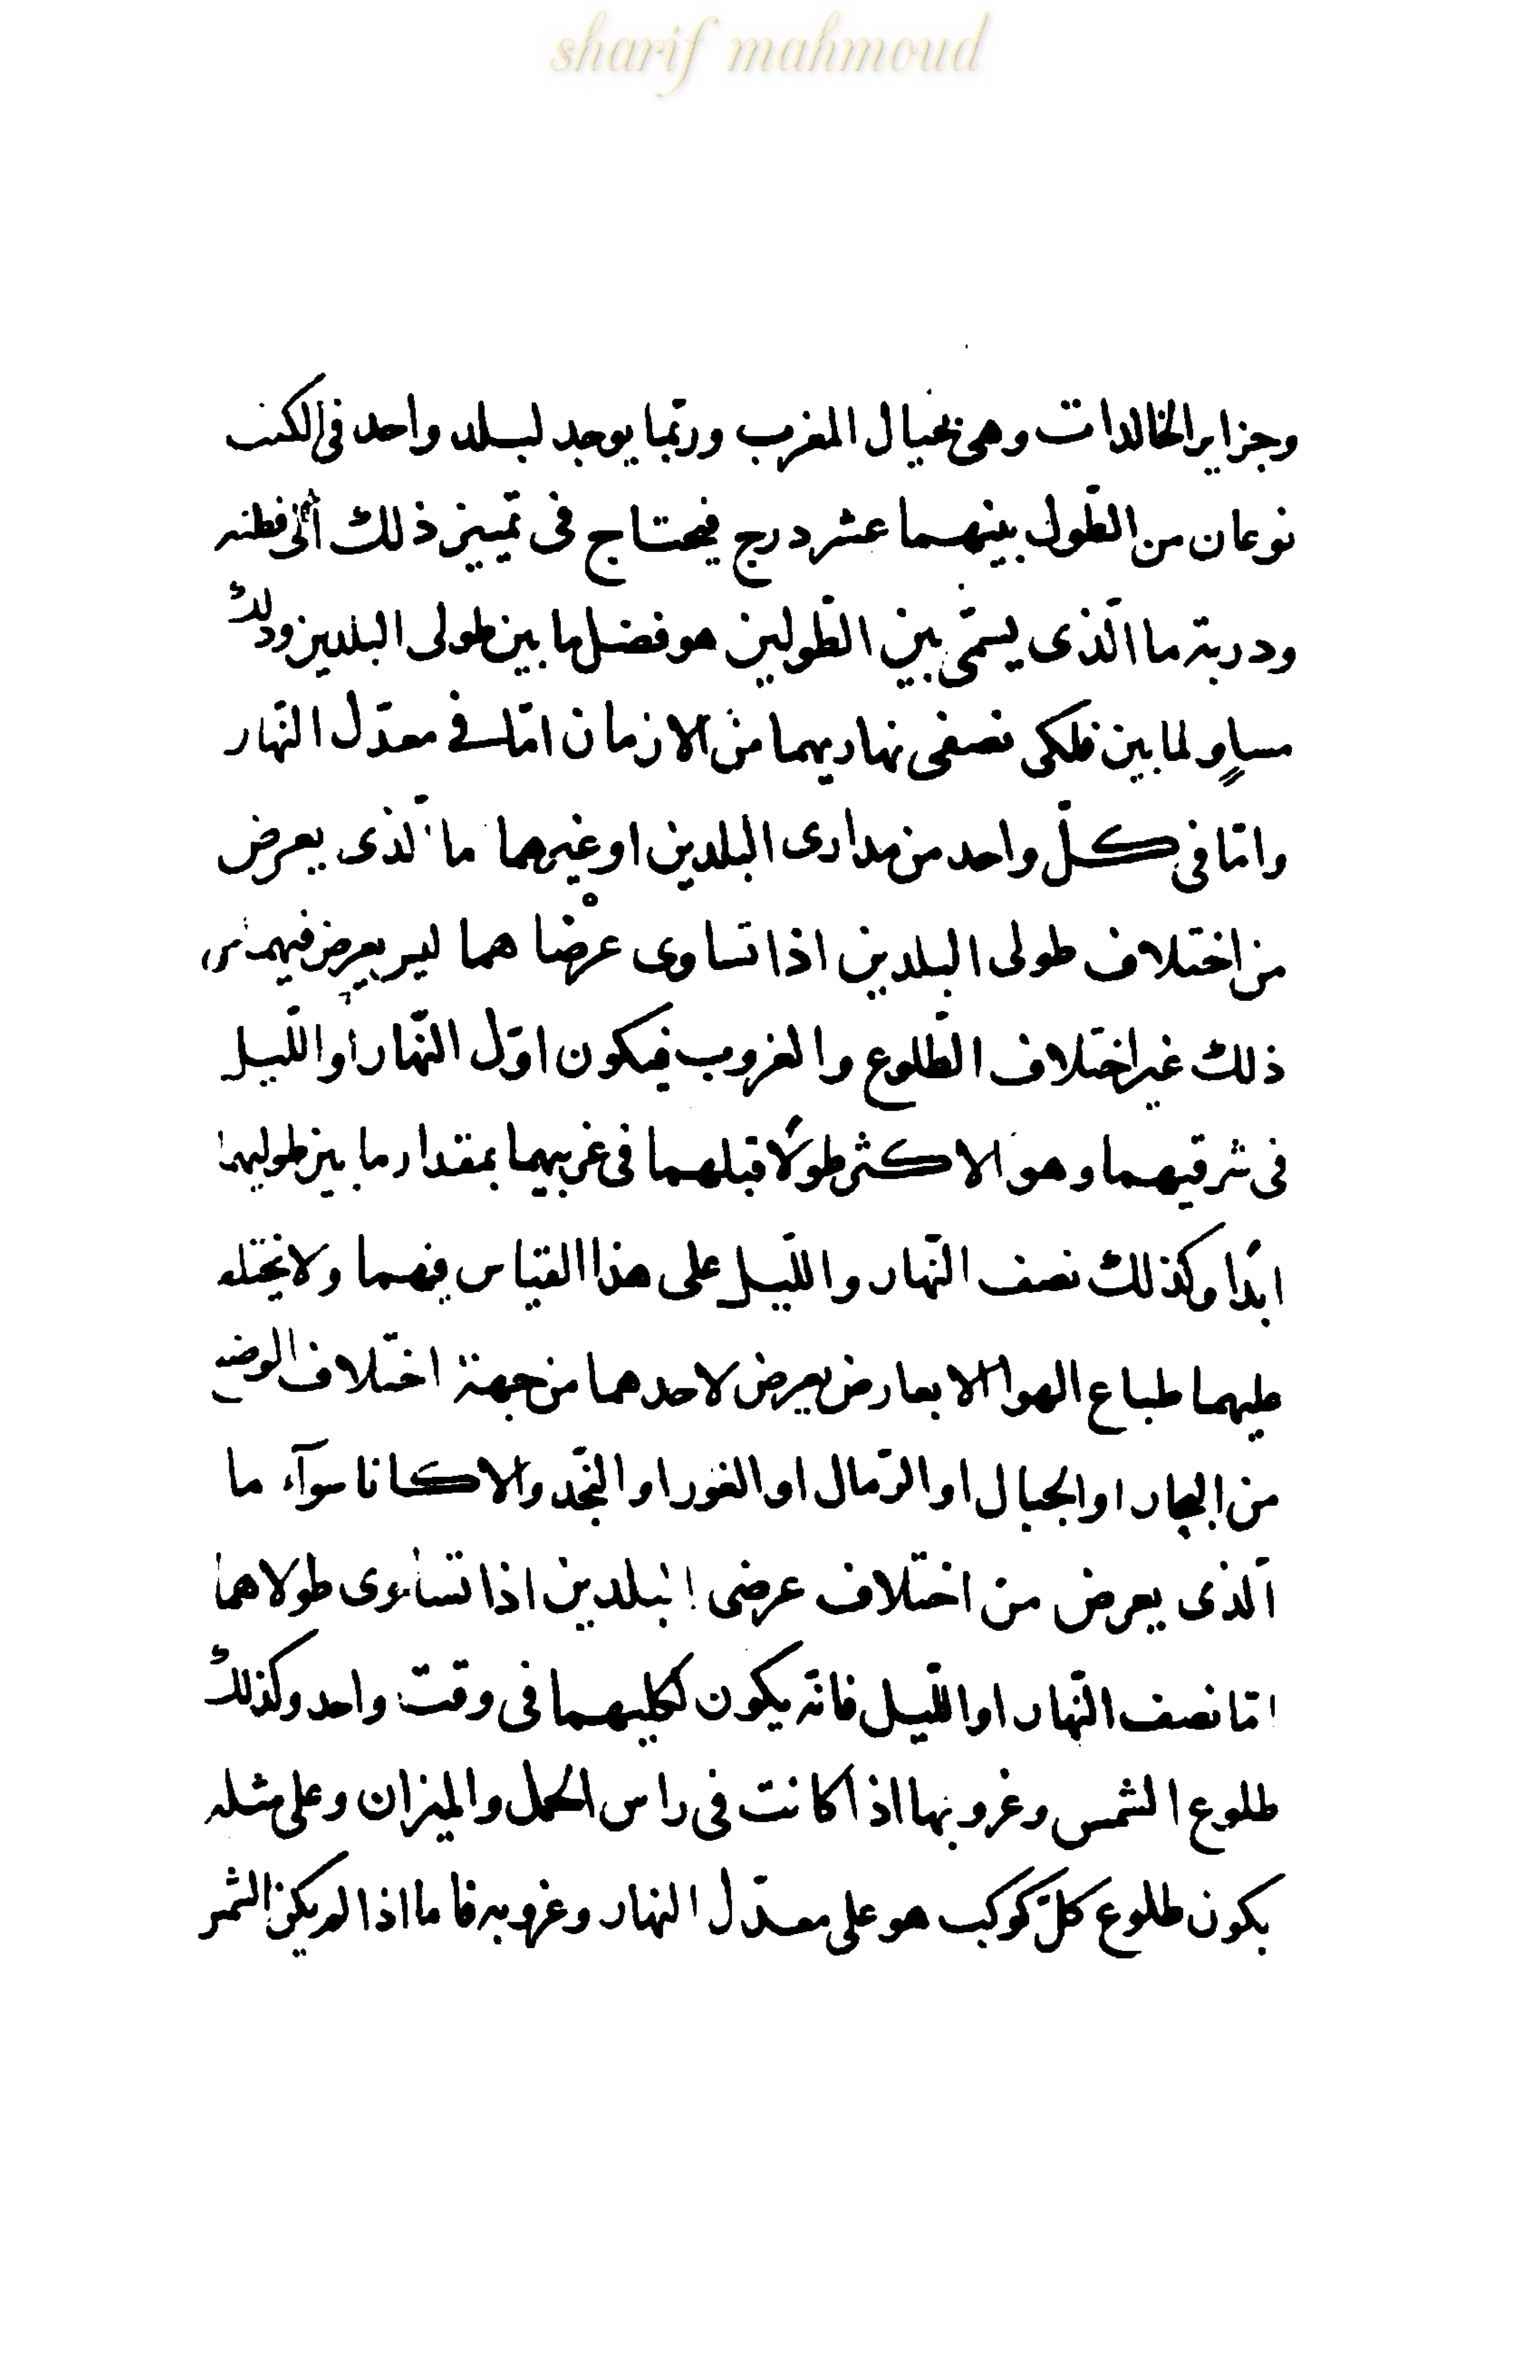 sharif mahmoud
وجزاير الخالدات وهى بحيال المغرب وربّما يوجد لبلد واحد فى الكتب
نوعان من الطّول بينهما عشر درج فيحتاج فى تمييز ذلك الى فطنه
ودربة ما الّذى يسمّى بين الطّولين هو فضل ما بين طولى البلدين وذلك
مساوٍ لما بين فلكى نصفى نهاريهما من الازمان امّا فى معدّل النّهار
وامّا فى كلّ واحد من مدارى البلدين او غيرهما ما الّذى يعرض
من اختلاف طولى البلدين اذا تساوى عرضاهما ليس يعرض فيهما من
ذلك غير اختلاف الطّلوع والغروب فيكون اوّل النّهار او اللّيل
فى شرقيهما وهو الاكثر طولًا قبلهما فى غربيهما بمقدار ما بين طوليهما
ابدًا وكذلك نصف النّهار واللّيل على هذا القياس فيهما ولا يختلف
عليهما طباع الهوا الا بعارض يعرض لاحدهما من جهة اختلاف الوضع
من البحار او الجبال او الرّمال او الغور او النّجد والا كانا سوآء ما
الّذى يعرض من اختلاف عرضى البلدين اذا تساوى طولاهما
امّا نصف النّهار او اللّيل فانّه يكون لكليهما فى وقت واحد وكذلك
طلوع الشمس وغروبها اذا كانت فى راس الحمل والميزان وعلى مثله
يكون طلوع كلّ كوكب هو على معدّل النهار وغروبه فاما اذا لم يكن الشمس